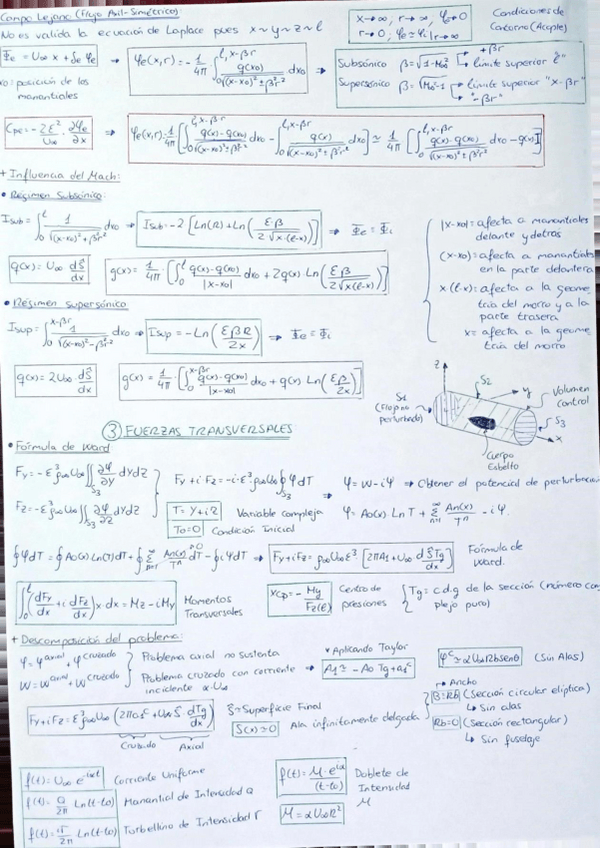 Campo Lejano (Flujo Axil-Simétrico)
No es valida la ecuación de Laplace pues x~y~z~l
x→∞, r→∞, φe→0
r→0, φe≃φi|r→∞
Condiciones de Contorno (Acople)
Φe = U∞ x + δe φe
x0: posición de los manantiales
φe(x,r) = -1/4π ∫0^(l, x-βr) q(x0)/√((x-x0)²±β²r²) dx0
Subsónico β=√(1-M∞²) → +βr → límite superior "l"
Supersónico β=√(M∞²-1) → límite superior "x-βr" → "-βr"
Cpe = -2ε²/U∞ · ∂φe/∂x
φe(x,r) = 1/4π [∫0^(l, x-βr) q(x)-q(x0)/√((x-x0)²±β²r²) dx0 - ∫0^(l, x-βr) q(x)/√((x-x0)²±β²r²) dx0] ≃ 1/4π [∫0^(l, x-βr) q(x)-q(x0)/√((x-x0)²±β²r²) dx0 - q(x)I]
+ Influencia del Mach:
• Régimen Subsónico:
Isub = ∫0^l 1/√((x-x0)²+β²r²) dx0 → Isub = -2 [Ln(R)+Ln(εβ/2√(x·(l-x)))] → Φe = Φi
q(x) = U∞ dS/dx
g(x) = 1/4π · [∫0^l q(x)-q(x0)/|x-x0| dx0 + 2q(x) Ln(εβ/2√(x(l-x)))]
|x-x0| = afecta a manantiales delante y detrás
(x-x0) = afecta a manantiales en la parte delantera
x(l-x) = afecta a la geometría del morro y a la parte trasera
x = afecta a la geometría del morro
• Régimen supersónico
Isup = ∫0^(x-βr) 1/√((x-x0)²-β²r²) dx0 → Isup = -Ln(εβR/2x) → Φe = Φi
q(x) = 2U∞ · dS/dx
g(x) = 1/4π · [∫0^(x-βr) q(x)-q(x0)/|x-x0| dx0 + q(x) Ln(εβ/2x)]
z
S1
(Flujo no perturbado)
S2
y
Volumen control
S3
x
Cuerpo Esbelto
③ FUERZAS TRANSVERSALES
• Fórmula de Ward
Fy = -ε³ρ∞U∞ ∬S3 ∂φ/∂y dydz
Fz = -ε³ρ∞U∞ ∬S3 ∂φ/∂z dydz
Fy+iFz = -i·ε³ρ∞U∞ ∮S3 φdT → φ = W-iψ → Obtener el potencial de perturbación
T = y+iz Variable compleja
T0=0 Condición Inicial
φ = A0(x)·Ln T + Σn=1^∞ An(x)/T^n - iψ
∮φdT = ∮A0(x)Ln(T)dT + ∮Σn=1^∞ An(x)/T^n dT - ∮iψdT → Fy+iFz = ρ∞U∞ε³ [2πA1+U∞ d(STg)/dx] Fórmula de Ward.
∫0^l (dFy/dx + i dFz/dx) x·dx = Mz-iMy Momentos Transversales
xcp = -My/Fz(l) Centro de presiones
Tg = c.d.g de la sección (número complejo puro)
+ Descomposición del problema:
φ = φ^axial + φ^cruzado
W = W^axial + W^cruzado
Problema axial no sustenta
Problema cruzado con corriente incidente α·U∞
* Aplicando Taylor
A1 ≃ -A0Tg+a1^c
φ^c ≃ αU∞Rb senθ (Sin Alas)
Fy+iFz = ε³ρ∞U∞ (2πa1^c + U∞S dTg/dx)
Cruzado Axial
S = Superficie Final
S(x)≃0 Ala infinitamente delgada
Ancho
B=Rb (Sección circular elíptica) → Sin alas
Rb=0 (Sección rectangular) → Sin fuselaje
f(t) = U∞ e^(-iα)t Corriente Uniforme
f(t) = Q/2π Ln(t-t0) Manantial de Intensidad Q
f(t) = iΓ/2π Ln(t-t0) Torbellino de Intensidad Γ
f(t) = M·e^(iα)/(t-t0) Doblete de Intensidad M
M = αU∞R²